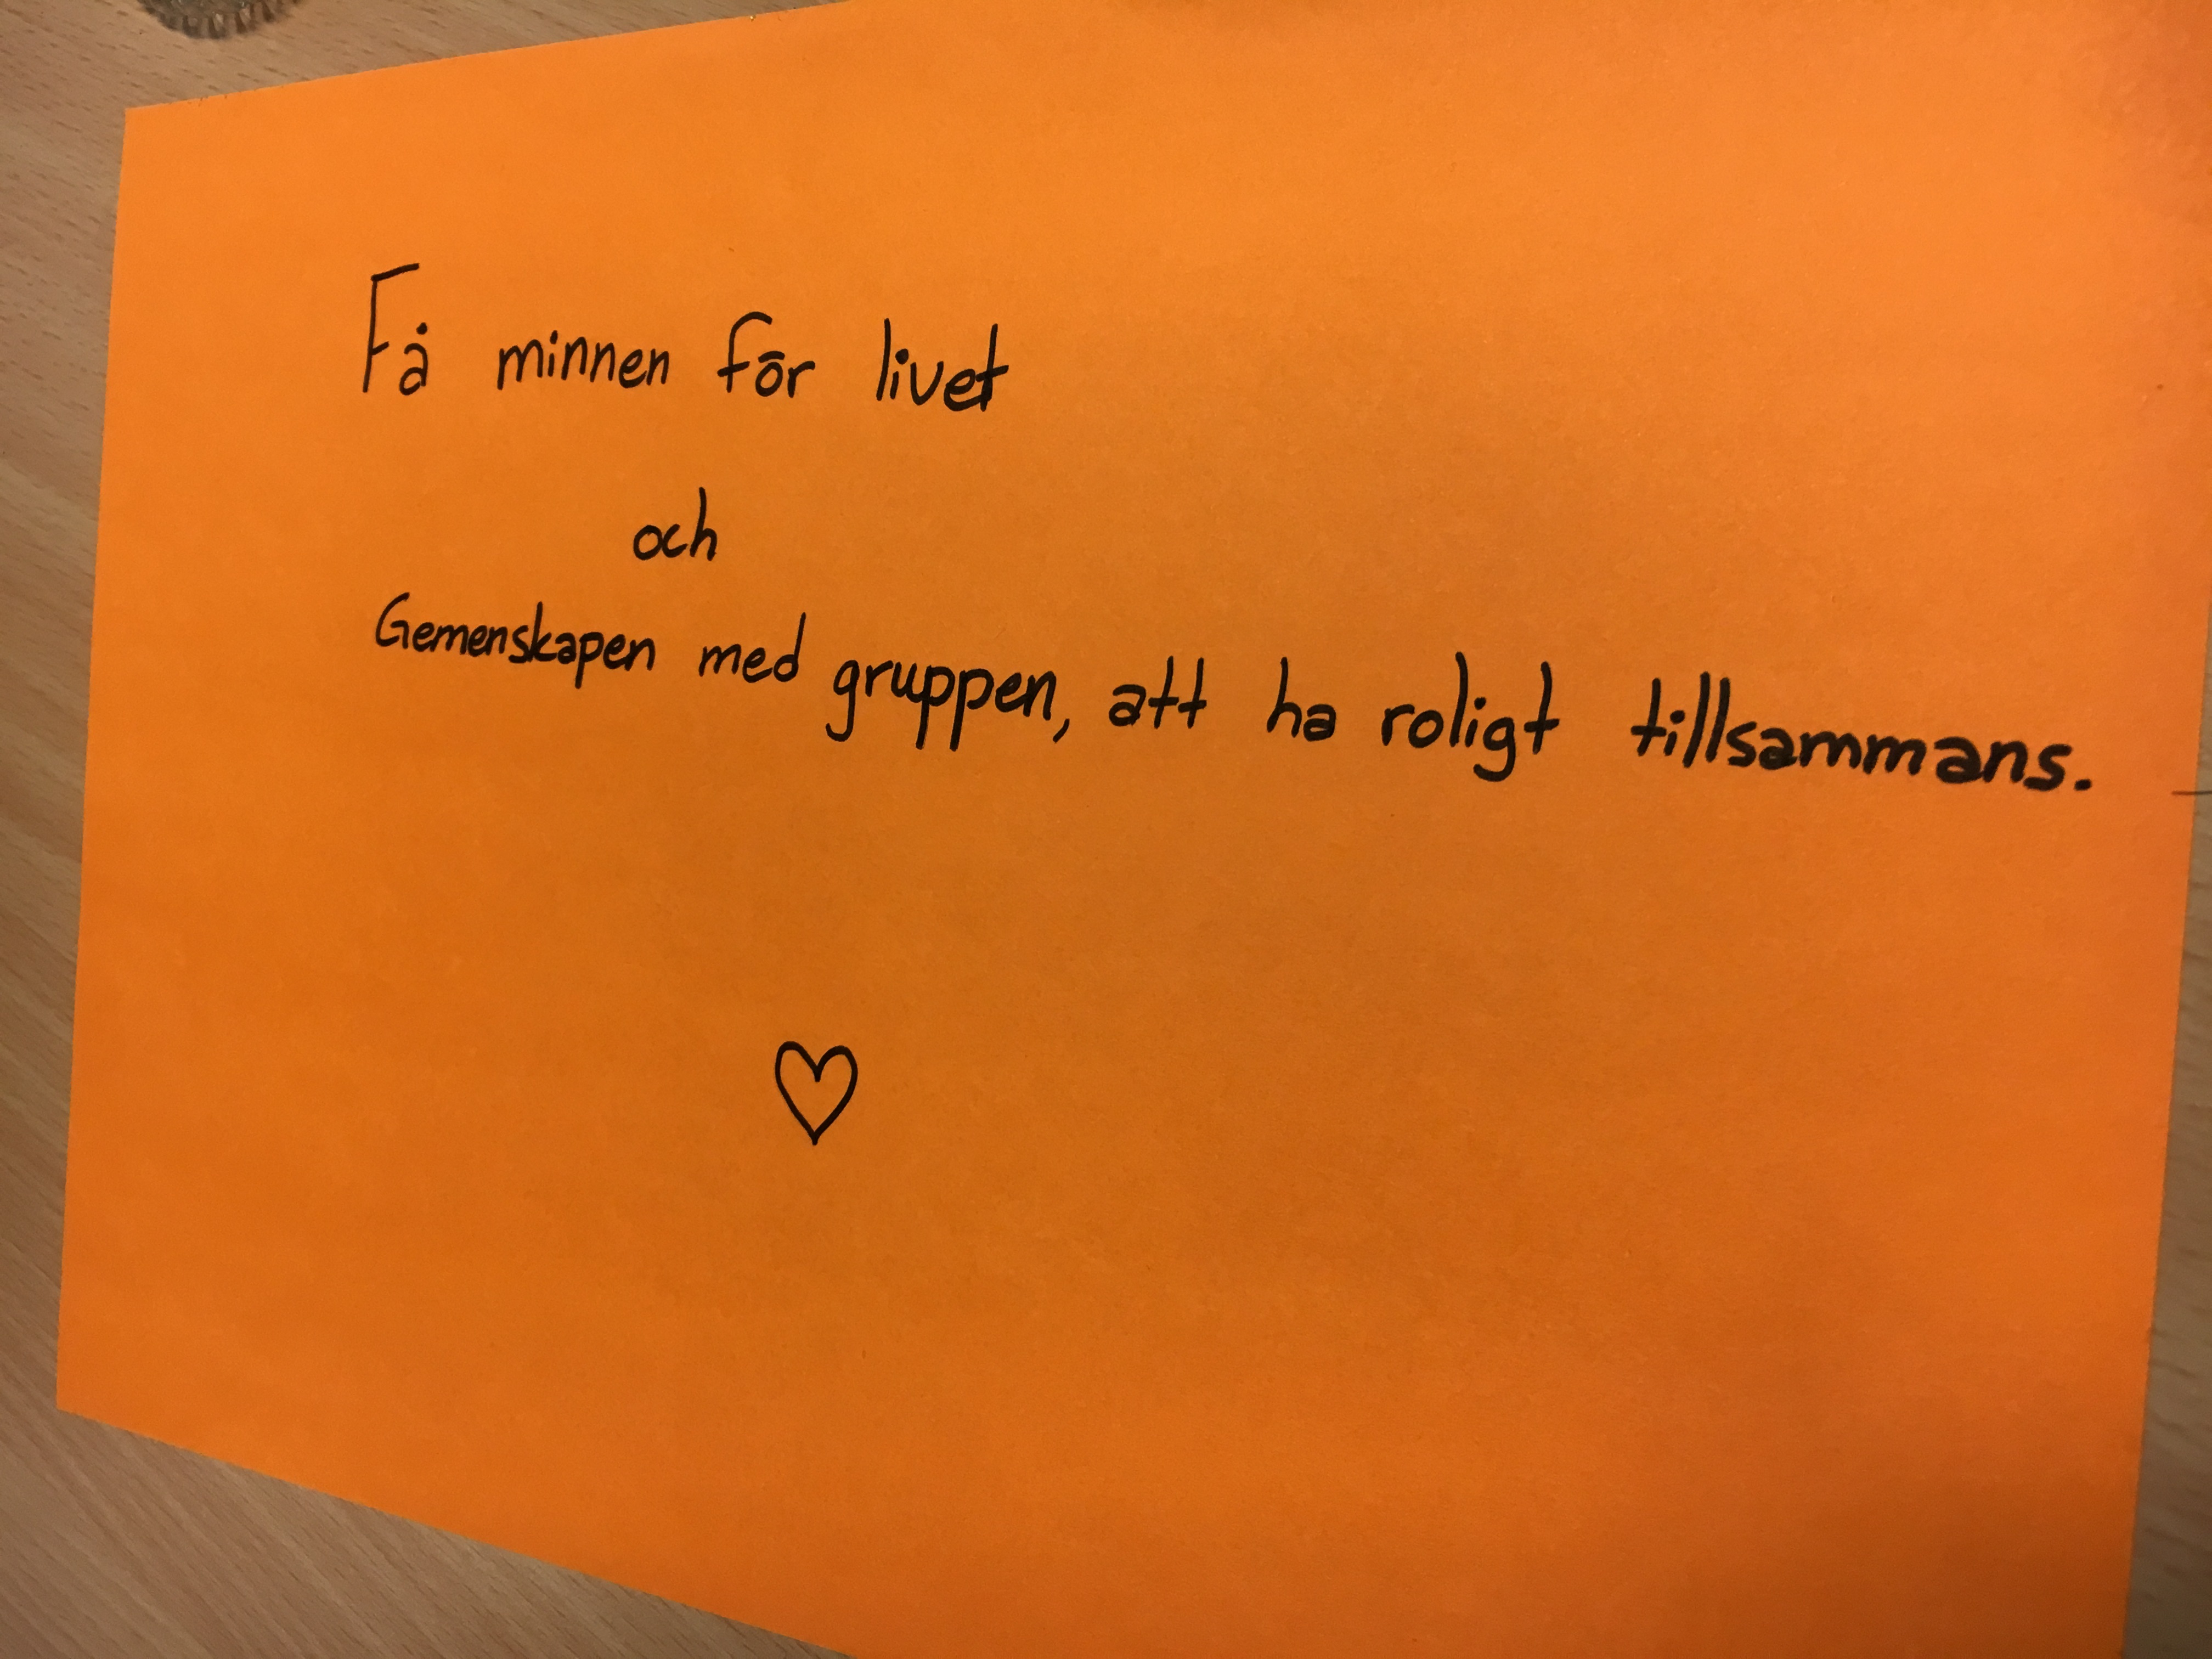 Få minnen för livet
och
Gemenskapen med gruppen, att ha roligt tillsammans.